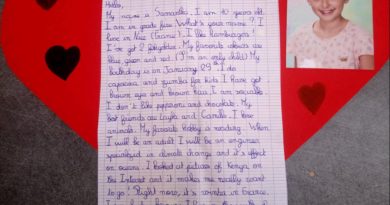 Hello,
My name is Samantha. I am 10 years old.
I am in grade five. What's your name? I
live in Nice (France). I like hamburgers!
I've got 2 My favorite colours are
blue, green and red. (I'm an only child) My
birthday is on January 29th. I do
capoeira and zumba for kids. I have got
brown eyes and brown hair. I am sociable
I don't like peppers and chocolate. My
best friends are Layla and Camille. I love
animals. My favorite hobby is reading. When
I will be an adult I will be an engineer
specialized in climate change and it's effect
on oceans. I looked at pictures of Kenya on
the Internet and it makes me really want
to go! Right now, it's winter in France.